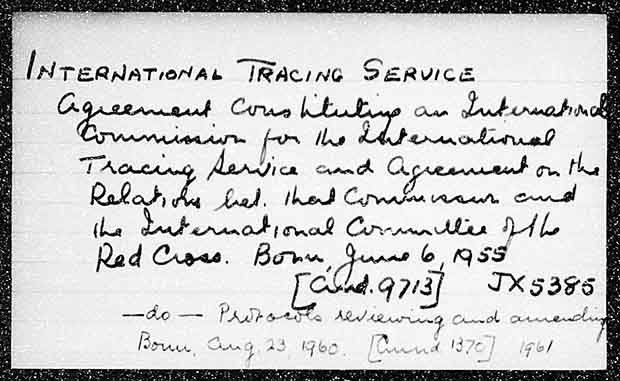 INTERNATIONAL TRACING SERVICE
Agreement Constituting an International
Commission for the International
Tracing Service and Agreement on the
Relations bet. that Commission and
the International Committee of the
Red Cross. Bonn, June 6, 1955
[Cmd. 9713] JX5385
—do— Protocols reviewing and amending
Bonn, Aug. 23, 1960. [Cmnd 1370] 1961